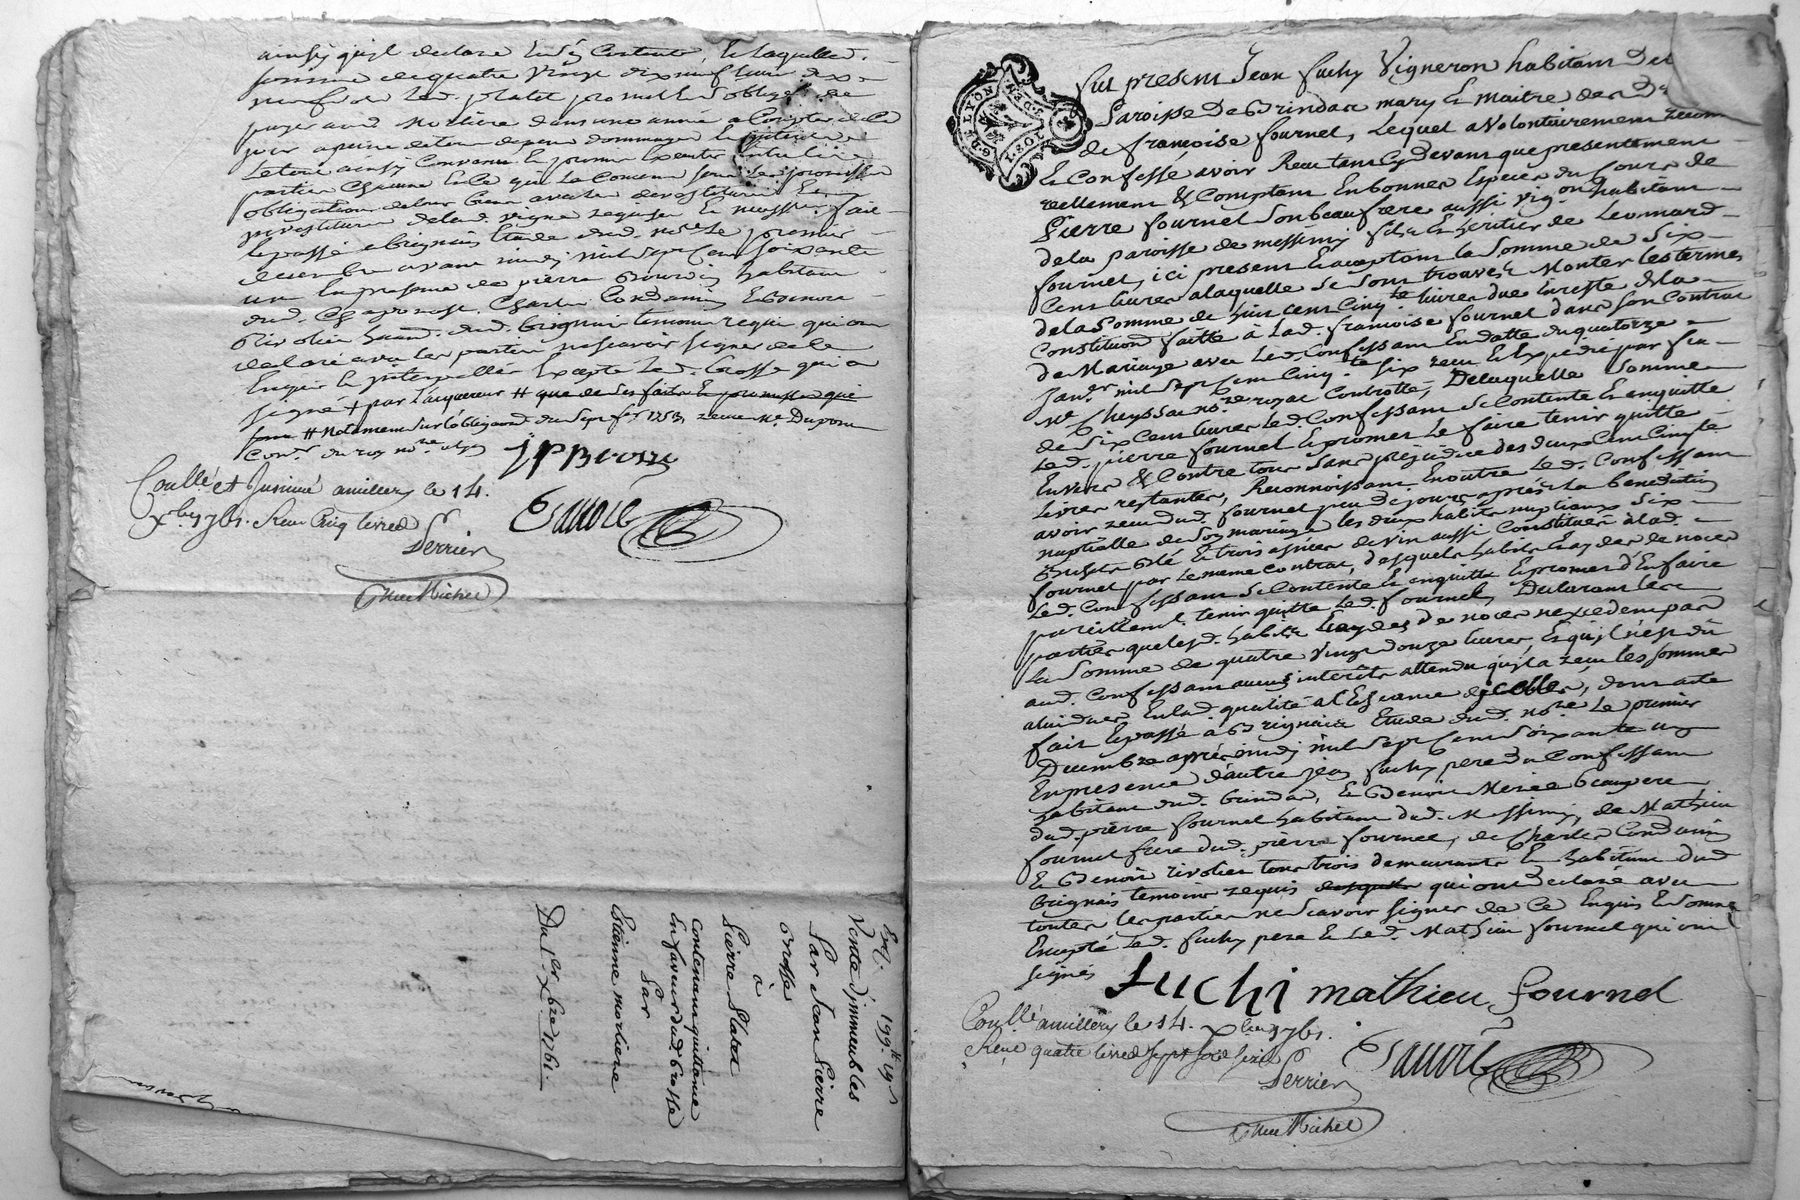 ainsy qu'il declare Et s'en Contente, Et laquelle
somme de quatre vingt dix neuf livres dix
neuf sols led. platet promet Et s'oblige de
payer aud. Morliere dans une année a Compter de ce
jour a peine de tous depens dommages Et interets
Le tout ainsy Convenu Et promis Executer Entre les
parties Chacune En Ce qui La Concerne sous les
obligations de leurs biens avec les devestitures Et
investitures de lad. vigne requises Et necessaires, fait
Et passé a brignais Etude dud. nore Le premier
decembre avant midy mil sept Cens soixante
un En presence de pierre habitant
dud. Chaponost, Charles Condamin Et Benoit
Rivolier habit. dud. brignais temoins requis qui ont
declaré avec les parties ne sçavoir signer de ce
Enquis Et interpellés Excepté Led. brosse qui a
signé + par L'acquereur # que de ses faits Et promesses que
# notament sur l'obligaon du sept fer 1753 recue Me Dupont
Conser du roy nore
J P Brosse
Coullé et Insinué a millery le 14.
Xbre 1761. Reçu Cinq livres
Derrien
Esnard
Gme Michel
Exp. 199tt 19s
Vente d'immeubles
Par Jean Pierre
Brosse
à
Pierre Platet
Contenant quittance
En faveur dud. Brosse
Par
Etienne morliere
Du 1er Xbre 1761.
G. DE LYON
Fut present Jean Fuchy Vigneron habitant de la
Paroisse De Brindas mary Et maitre des Ds
de françoise fournel, Lequel a Volontairement reconnu
Et Confessé avoir Reçu tant Cydevant que presentement
reellement & Comptant En bonnes Especes du Cours de
Pierre fournel son beaufrere aussi vigon habitant
de la paroisse de messimy fils Et heritier de Leonard
fournel, ici present Et acceptant la Somme de Six
Cens livres a laquelle se sont trouvés Monter les termes
de la Somme de huit cens Cinqte livres due En reste de la
Constitution faitte à Lad. françoise fournel dans son Contrat
de Mariage avec Led. Confessant En datte du quatorze
Janer mil sept Cens Cinqte six reçu Et Expedié par feu
Me Cheyssac nore royal Controllé, De laquelle Somme
de Six Cens livres Led. Confessant Se Contente Et en quitte
Led. pierre fournel Et promet Le faire tenir quitte
Envers & Contre tous Sans prejudice des deux Cens Cinqte
Livres restantes, Reconnoissant En outre Led. Confessant
avoir reçu dud. fournel peu de jours après La benediction
nuptialle de son mariage les deux habits nuptiaux six
Bichets Blé Et trois asnées de vin aussi Constitués à lad.
fournel par Le meme contrat, desquels habits Et de noces
Led. Confessant Se Contente Et en quitte Et promet d'En faire
pareillemt. tenir quitte Led. fournel, Declarant les
parties que lesd. habits de noces n'excedent pas
La Somme de quatre Vingt douze livres, Et qu'il n'est dû
aud. Confessant aucuns interêts attendu qu'il a reçu les sommes
à lui dues En lad. qualité a L'Echeance d'jcelles, dont acte
fait Et passé à Brignais Etude dud. nore Le premier
Decembre après midy mil Sept Cens Soixante un
En presence d'autre jean fuchy pere du Confessant
habitant dud. brindas, Et Benoit beaupere
dud. pierre fournel habitant dud. Messimy, de Mathieu
fournel frere dud. pierre fournel, de Charles Condamin
Et Benoit rivolier tous trois demeurants Et habitans dud.
brignais temoins requis desquels qui ont declaré avec
toutes les parties ne sçavoir signer de Ce Enquis Et Sommés
Excepté Led. fuchy pere Et Led. Mathieu fournel qui ont
signés
Fuchi mathieu fournel
Coullé a millery le 14. Xbre 1761.
Reçu quatre livres sept sols
Derrien
Esnard
Gme Michel